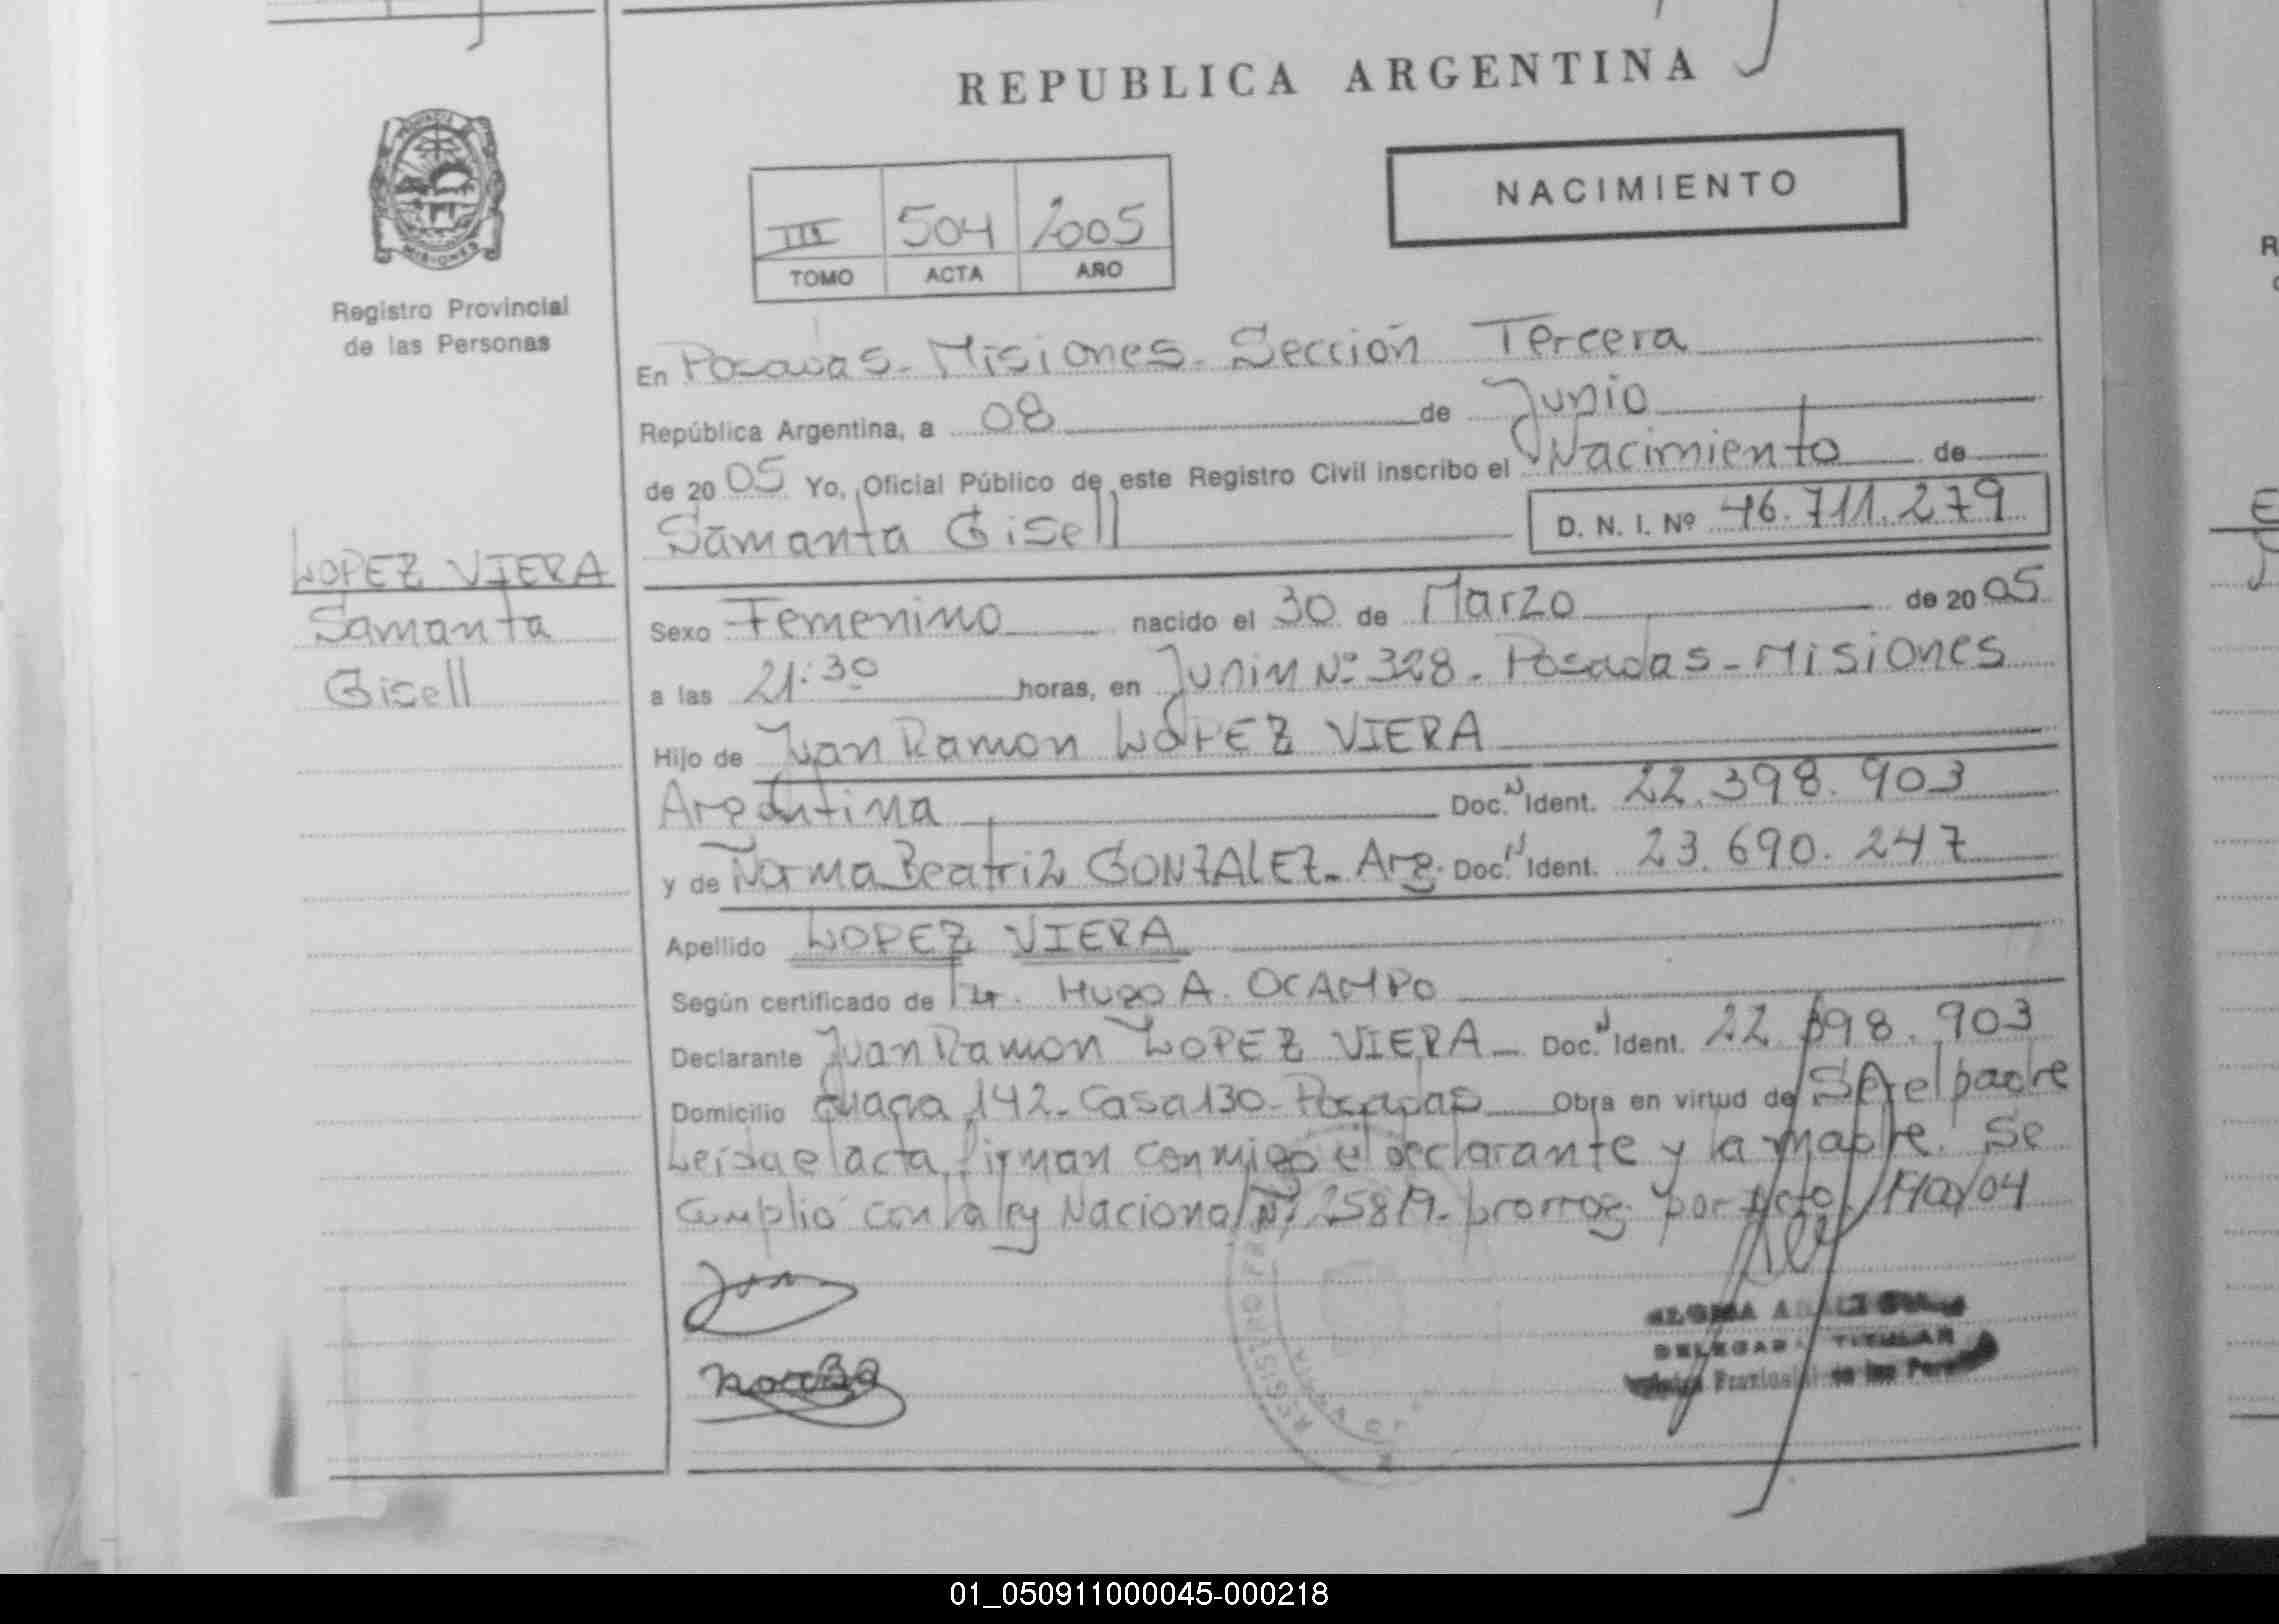 REPUBLICA ARGENTINA
PROVINCIA
MISIONES
Registro Provincial
de las Personas
NACIMIENTO
III 504 2005
TOMO ACTA AÑO
En Posadas - Misiones - Sección Tercera
República Argentina, a 08 de Junio
de 2005 Yo, Oficial Público de este Registro Civil inscribo el Nacimiento de
Samanta Gisell D. N. I. Nº 46.711.279
LOPEZ VIERA
Samanta
Gisell
Sexo Femenino nacido el 30 de Marzo de 2005
a las 21:30 horas, en Junin Nº 328 - Posadas - Misiones
Hijo de Juan Ramon LOPEZ VIERA
Argentina Doc. N Ident. 22.398.903
y de Norma Beatriz GONZALEZ - Arg. Doc. N Ident. 23.690.247
Apellido LOPEZ VIERA
Según certificado de Dr. Hugo A. OCAMPO
Declarante Juan Ramon LOPEZ VIERA - Doc. N Ident. 22.398.903
Domicilio 142 - Casa 130 - Posadas Obra en virtud de Ser el padre
Leída el acta, firman conmigo el declarante y la madre. Se
cumplió con la ley Nacional Nº 25819 - prorrog. por Dcto.
DELEGADA TITULAR
Provincial de las
01_050911000045-000218